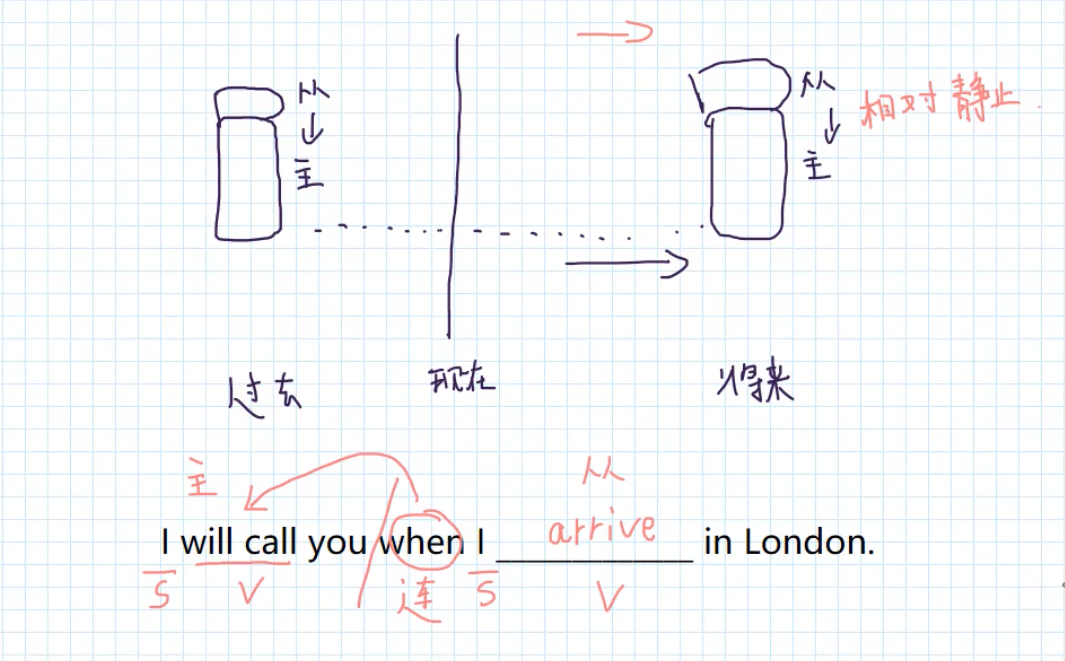 从 从
↓ ↓ 相对静止.
主 主
过去 现在 将来
主 从
I will call you when I arrive in London.
S V 连 S V